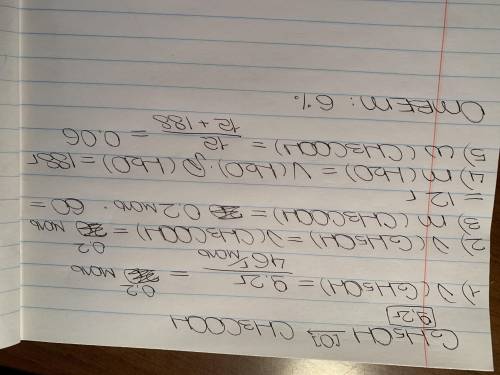 C2H5OH [O] CH3COOH
9,2г
1) ν(C2H5OH) = 9,2г / 46г/моль = 0,2 моль
2) ν(C2H5OH) = ν(CH3COOH) = 0,2 моль
3) m(CH3COOH) = 0,2 моль · 60 =
= 12г
4) m(H2O) = V(H2O) · ρ(H2O) = 188г
5) ω(CH3COOH) = 12 / 12 + 188 = 0,06
Ответ: 6%